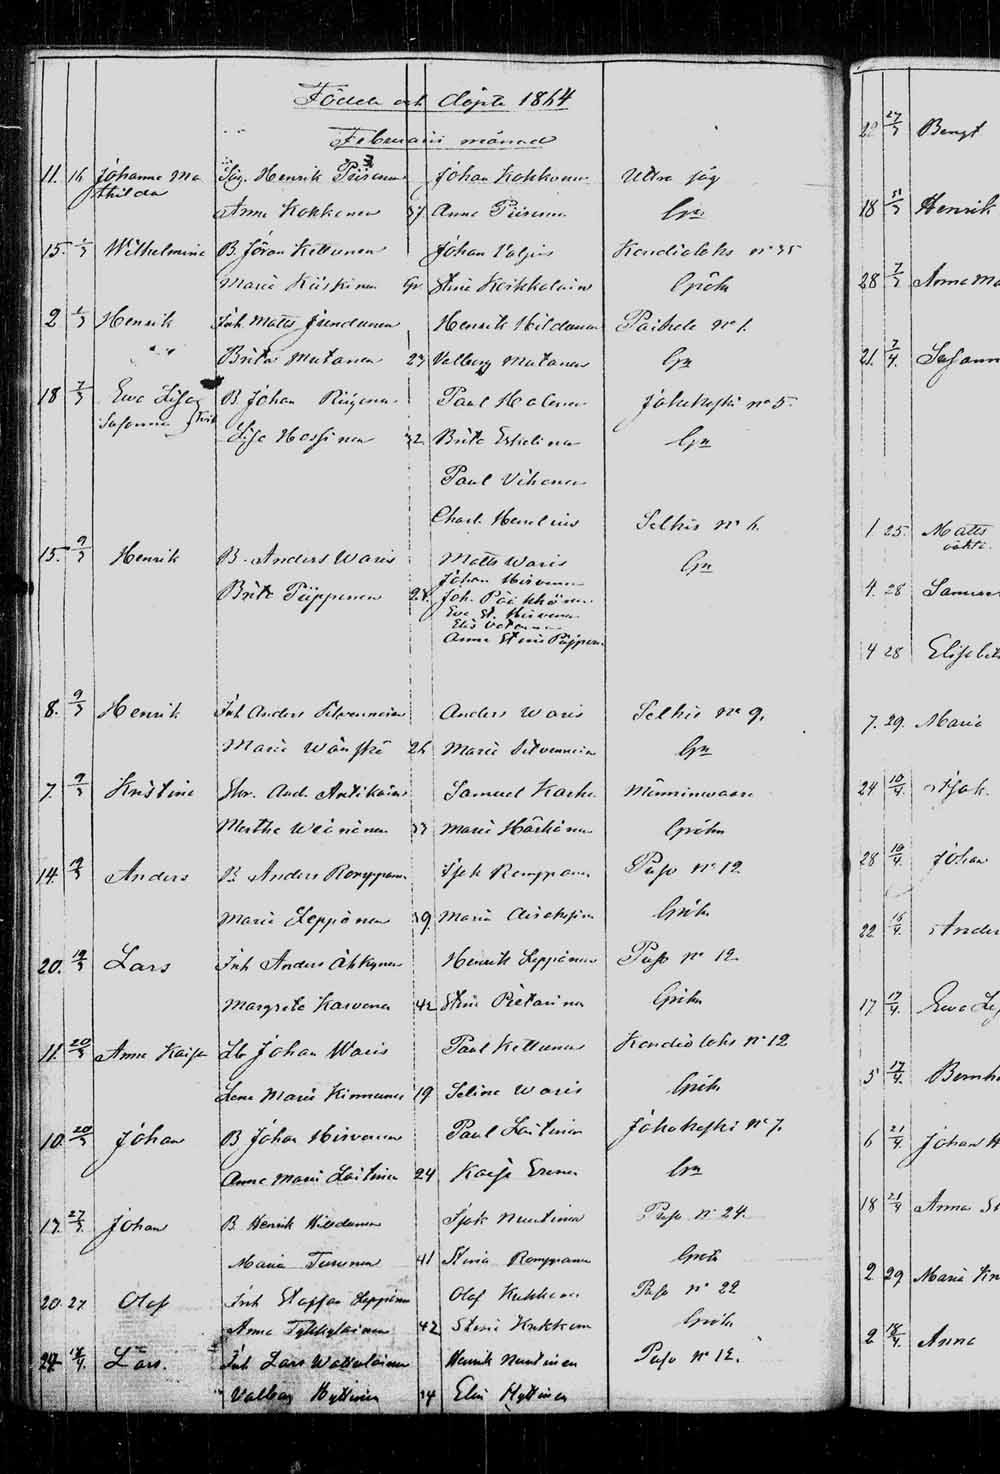 Födde och döpte 1864
Februarii månad
11. 16 Johanna Ma Säg. Henrik Piironen Johan Kokkonen Utra såg
thilda
Anna Kokkonen 37 Anna Piironen Grn
15. 1/3 Wilhelmina B. Jöran Kettunen Johan Valjus Kondiolaks nº 35
Maria Kiiskinen Stina Kaikkolainen Gröhn
2 1/3 Henrik Inh. Matts Henrik Hildunen Paihola nº 1.
Brita Mutanen 23 Valborg Mutanen Grn
18 7/3 Eva Lisa B. Johan Paul Halonen Jakokoski nº 5.
Susanna
Lisa Hassinen 32 Brita Eskelinen Grn
Paul Vihonen
Charl. Henelius Selkie nº 6.
15. 9/3 Henrik B. Anders Waris Matts Waris Grn
Johan Hirvonen
Brita Piipponen Joh. Pöikkönen
Eva St. Hirvonen
Anna Stina Piipponen
8. 9/3 Henrik Inh. Anders Silvennoinen Anders Waris Selkie nº 9.
Maria Wänskä 26 Maria Silvennoinen Grn
7. 9/3 Kristina And. Antikainen Samuel Karhu Männinwaara
Martha Wäinönen 33 Maria Härkönen Gröhn
14. 19/3 Anders B. Anders Romppanen Isak Romppanen Puso nº 12
Maria Leppänen 39. Maria Gröhn
20. 19/3 Lars Inh Anders Henrik Leppänen Puso nº 12
Margreta Karvonen 42 Stina Pietarinen Gröhn
11. 20/3 Anna Kaisa Lb Johan Waris Paul Kettunen Kondiolaks nº 12
Lena Maria Kinnunen 19 Selina Waris Gröhn
10. 20/3 Johan B Johan Hirvonen Paul Laitinen Jakokoski nº 7.
Anna Maria Laitinen 24 Kaisa Eronen Grn
17. 27/3 Johan B. Henrik Hildunen Isak Nuutinen Puso nº 24.
Maria Turunen 41 Stina Romppanen Gröhn
20. 27 Olof Inh Staffan Leppänen Olof Kukkonen Puso nº 22
Anna Tykkyläinen 42 Stina Kukkonen Gröhn
Lars. Inh Lars Henrik Nuutinen Puso nº 12.
Valborg Hyttinen 34 Elin Hyttinen
22 27/3 Bengt
18 31/3 Henrik
28 7/3 Anna Ma
21. 3/4. Susann
1 25. Matts
oäkta.
4. 28 Samuel
4 28 Elisabet
7. 29. Maria
24 10/4. Isak.
28 10/4. Johan
22 15/4. Anders
17 17/4. Eva Lis
5 17/4. Bernh
6 21/4. Johan H
18 21/4 Anna St
2 29 Maria Kr
2 18/4. Anna